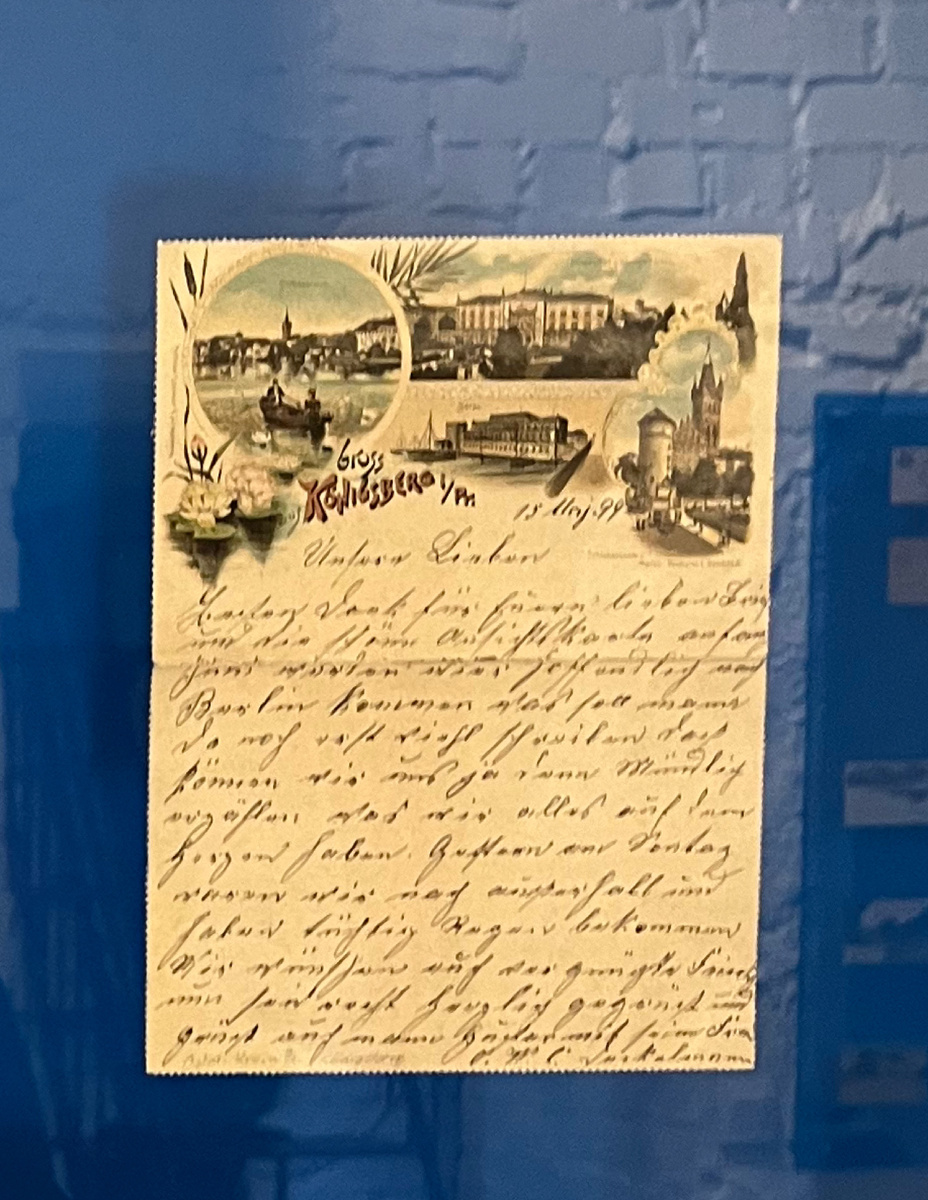 Gruss
aus KÖNIGSBERG i/Pr.
Börse
15 Maj 99
Unsere Lieben
Besten Dank für Euren lieben
und die schöne Ansichtskarte anfan
Juni werden wir hoffendlich nach
Berlin kommen was soll mann
da noch erst viehl schreiben das
können wir uns ja dann Mündlich
erzählen was wir alles auf dem
Herzen haben. Gestern am Sontag
waren wir nach ausserhalb und
haben tüchtig Regen bekommen
Wir wünschen auch vergnügte
nun seid recht herzlich gegrüßt und
grüßt auch mit seine